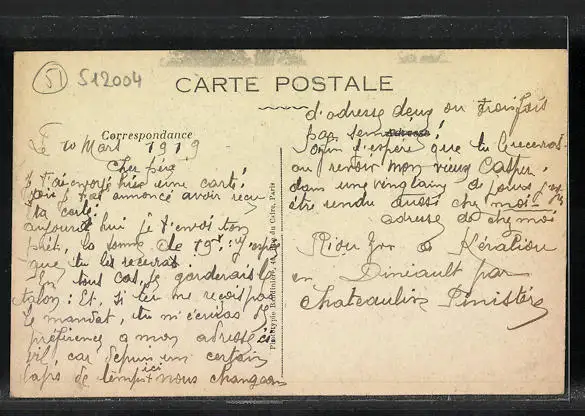 51 512004
CARTE POSTALE
Correspondance
Le 10 Mars 1919
Cher père
Je t'ai envoyé hier une carte,
je t'ai annoncé avoir reçu
ta carte.
aujourd'hui je t'envoi ton
prêt, la somme de 19f. J'espè
que tu les recevras.
En tous cas, je garderais le
talon. Et, si tu ne reçois pas
le mandat, tu m'écriras de
préférence a mon adresse ici
vil, car depuis un certain
laps de temps ici nous changeons
d'adresse deux ou trois fois
par semaine!
j'espère que tu le recevras
au revoir mon vieux
dans une vingtaine de jours
être rendu aussi chez moi
adresse de chez moi
Riou Yvo a Kératiou
en Dinéault par
Chateaulin Finistère
Phototypie Baudinière, rue du Caire, Paris